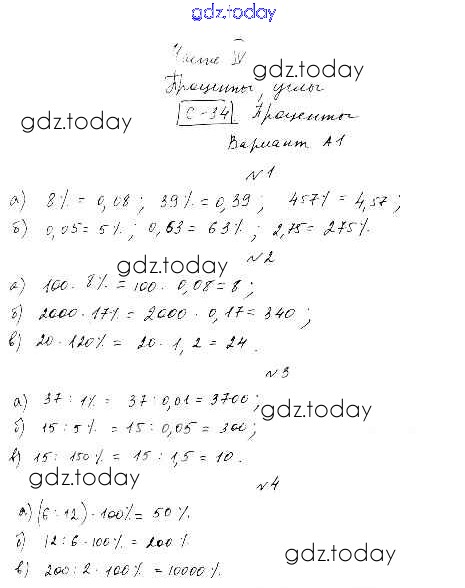 gdz.today
Часть IV
gdz.today
Проценты, углы
С-34 Проценты
gdz.today
Вариант А1
№1
а) 8% = 0,08; 39% = 0,39; 457% = 4,57;
б) 0,05 = 5%; 0,63 = 63%; 2,75 = 275%.
№2
gdz.today
а) 100 · 8% = 100 · 0,08 = 8;
б) 2000 · 17% = 2000 · 0,17 = 340;
в) 20 · 120% = 20 · 1,2 = 24.
№3
а) 37 : 1% = 37 : 0,01 = 3700;
gdz.today
б) 15 : 5% = 15 : 0,05 = 300;
в) 15 : 150% = 15 : 1,5 = 10.
gdz.today
№4
а) (6 : 12) · 100% = 50%.
б) 12 : 6 · 100% = 200%
gdz.today
в) 200 : 2 · 100% = 10000%.